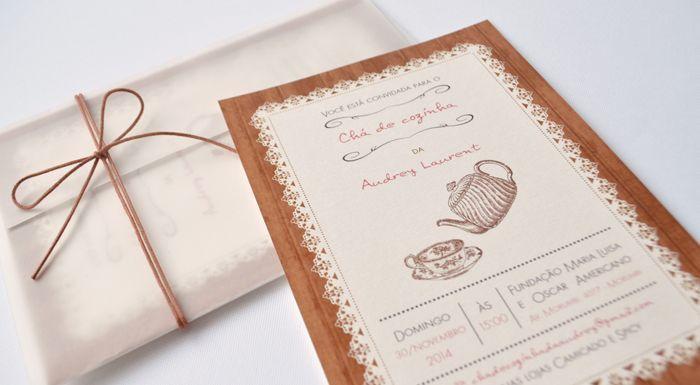 VOCÊ ESTÁ CONVIDADA PARA O
Chá de cozinha
DA
Audrey Laurent
DOMINGO
30/NOVEMBRO
2014
ÀS
15:00
FUNDAÇÃO MARIA LUISA
E OSCAR AMERICANO
AV. MORUMBI, 4077 - MORUMBI
LOJAS CAMICADO E SPICY